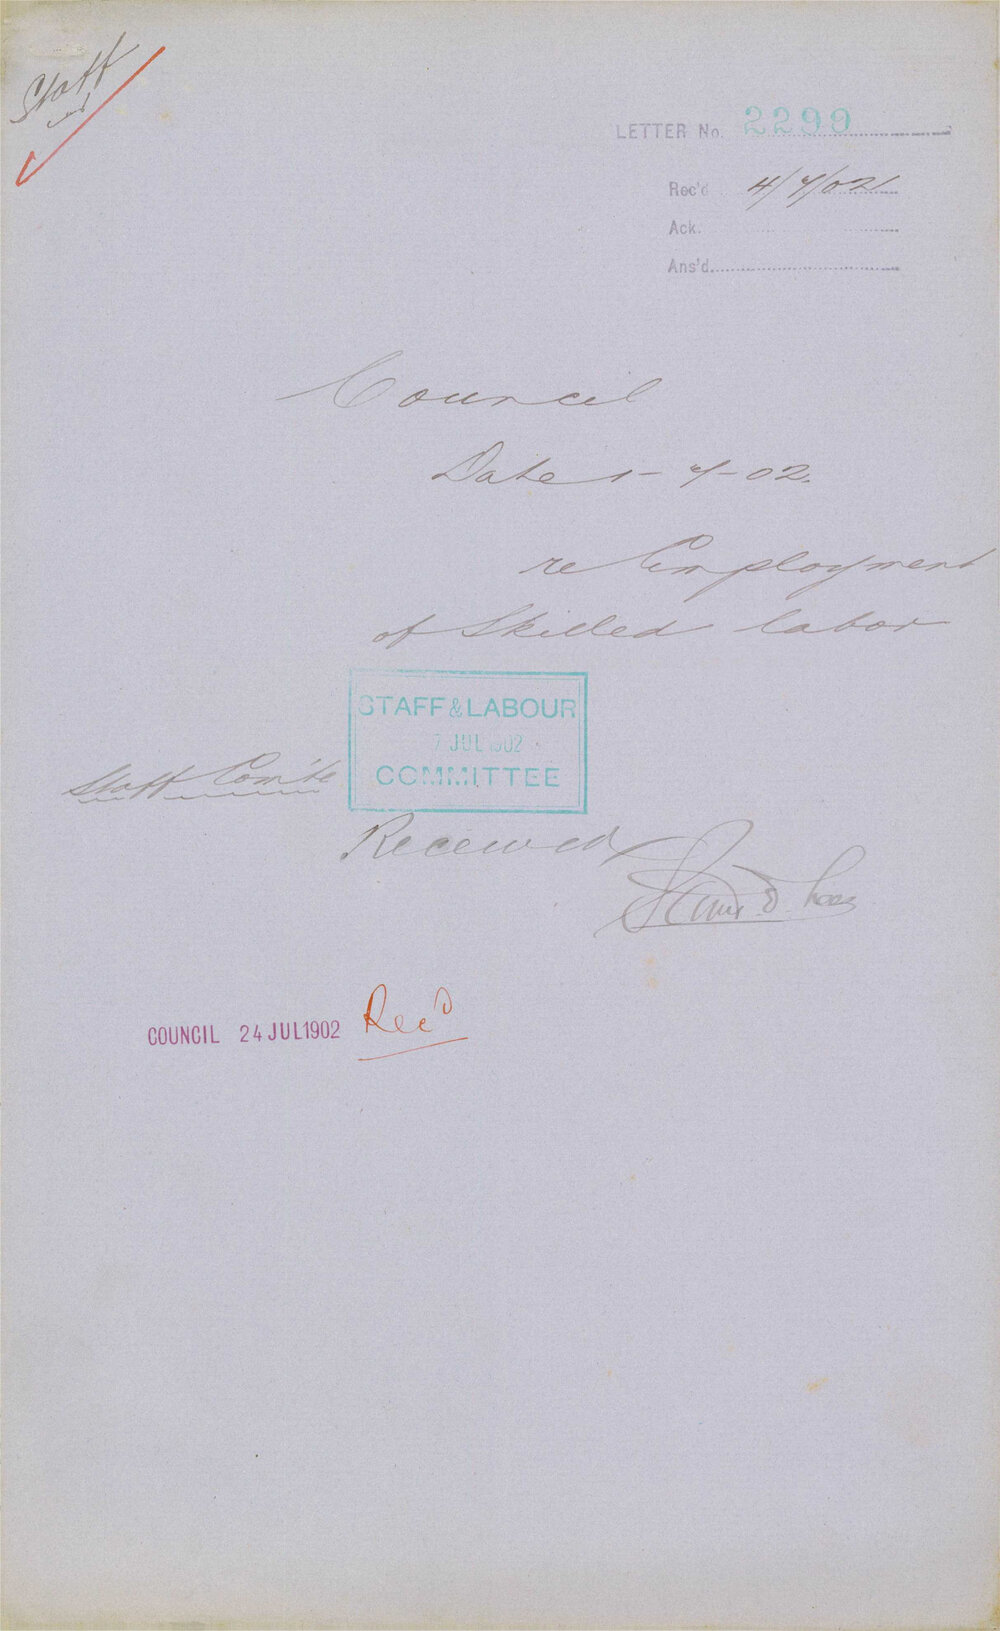 Staff
LETTER No. 2299
Rec'd 4/7/02
Ack.
Ans'd.
Council
Date 1-7-02.
re Employment
of Skilled labor
STAFF & LABOUR
7 JUL 1902
COMMITTEE
Staff Com'te
Received
COUNCIL 24 JUL 1902 Recd